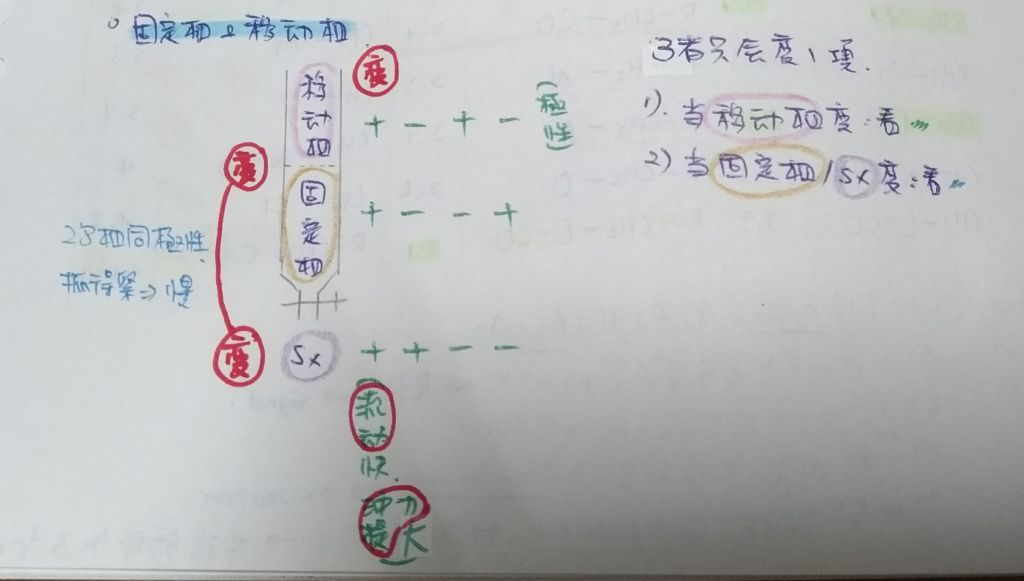 固定相 & 移动相
移动相
变
+ - + -
(極性)
变
固定相
+ - - +
2子相同極性
抓得緊 ⇒ 慢
变
Sx
+ + - -
(流动快.
冲提力大)
3者只会变1項.
1). 当移动相变:看
2) 当固定相/Sx变:看